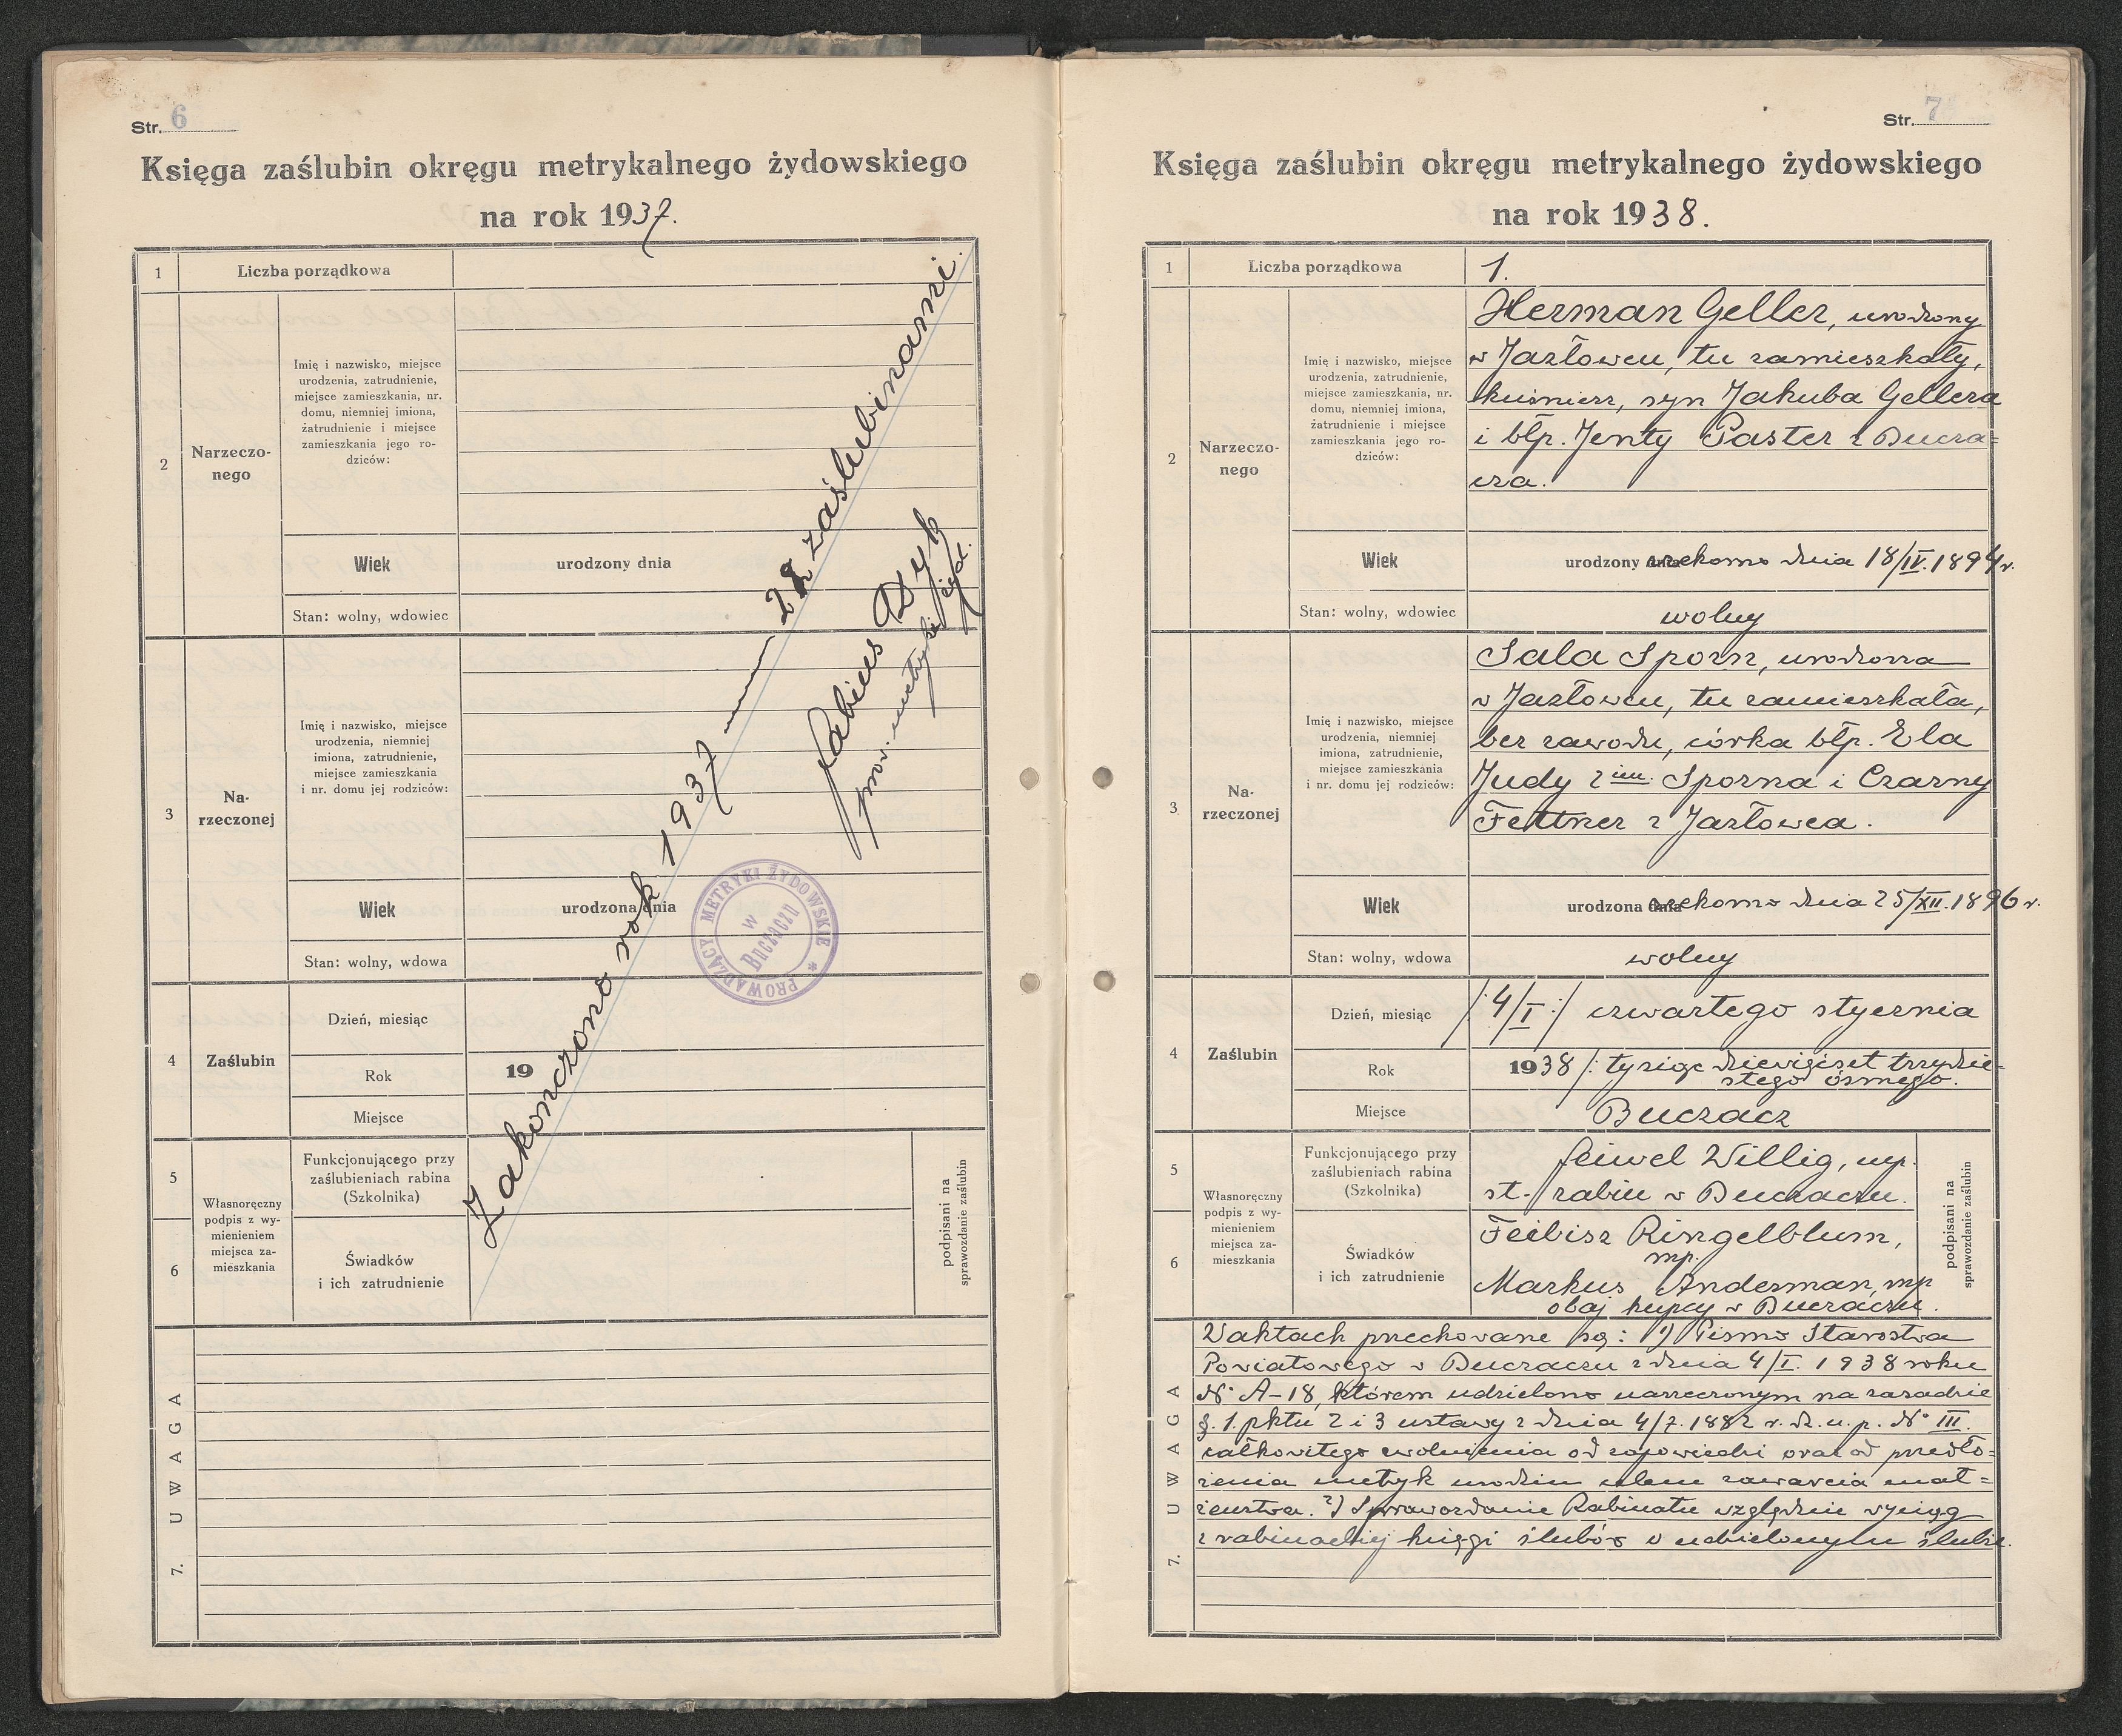 Str. 6
Księga zaślubin okręgu metrykalnego żydowskiego
na rok 1937.
1 Liczba porządkowa
2 Narzeczo-
nego
Imię i nazwisko, miejsce
urodzenia, zatrudnienie,
miejsce zamieszkania, nr.
domu, niemniej imiona,
zatrudnienie i miejsce
zamieszkania jego ro-
dziców:
Wiek urodzony dnia
Stan: wolny, wdowiec
3 Na-
rzeczonej
Imię i nazwisko, miejsce
urodzenia, niemniej
imiona, zatrudnienie,
miejsce zamieszkania
i nr. domu jej rodziców:
Wiek urodzona dnia
Stan: wolny, wdowa
4 Zaślubin
Dzień, miesiąc
Rok 19
Miejsce
5
6
Własnoręczny
podpis z wy-
mienieniem
miejsca za-
mieszkania
Funkcjonującego przy
zaślubieniach rabina
(Szkolnika)
Świadków
i ich zatrudnienie
podpisani na
sprawozdanie zaślubin
7. UWAGA
Zakończono rok 1937 — z zaślubinami.
prow. metryki żyd.
PROWADZĄCY METRYKI ŻYDOWSKIE *
w
Buczaczu
Str. 7
Księga zaślubin okręgu metrykalnego żydowskiego
na rok 1938.
1 Liczba porządkowa 1.
2 Narzeczo-
nego
Imię i nazwisko, miejsce
urodzenia, zatrudnienie,
miejsce zamieszkania, nr.
domu, niemniej imiona,
zatrudnienie i miejsce
zamieszkania jego ro-
dziców:
Herman Geller, urodzony
w Jazłowcu, tu zamieszkały,
kuśnierz, syn Jakuba Gellera
i błp. Jenty Paster z Bucza=
cza.
Wiek urodzony dnia rzekomo dnia 18/IV. 1894 r.
Stan: wolny, wdowiec wolny
3 Na-
rzeczonej
Imię i nazwisko, miejsce
urodzenia, niemniej
imiona, zatrudnienie,
miejsce zamieszkania
i nr. domu jej rodziców:
Sala Sporn, urodzona
w Jazłowcu, tu zamieszkała,
bez zawodu, córka błp. Ela
Judy 2 im. Sporna i Czarny
Fettner z Jazłowca.
Wiek urodzona dnia rzekomo dnia 25/XII. 1896 r.
Stan: wolny, wdowa wolny
4 Zaślubin
Dzień, miesiąc /:4/I:/ czwartego stycznia
Rok 1938 /: tysiąc dziewięćset trzydzie=
stego ósmego.
Miejsce Buczacz
5
6
Własnoręczny
podpis z wy-
mienieniem
miejsca za-
mieszkania
Funkcjonującego przy
zaślubieniach rabina
(Szkolnika)
Feiwel Willig, mp.
st. rabin w Buczaczu.
Świadków
i ich zatrudnienie
Feibisz Ringelblum,
mp.
Markus Anderman, mp
obaj kupcy w Buczaczu.
podpisani na
sprawozdanie zaślubin
7. UWAGA
W aktach przechowane są: 1) Pismo Starostwa
Powiatowego w Buczaczu z dnia 4/I. 1938 roku
N° A-18, którem udzielono narzeczonym na zasadzie
§. 1. pktu 2 i 3 ustawy z dnia 4/7. 1882 r. dz. u. p. N° III.
całkowitego zwolnienia od zapowiedzi oraz od przedło=
żenia metryk urodzin celem zawarcia mał=
żeństwa. 2) Sprawozdanie Rabinatu względnie wyciąg
z rabinackiej księgi ślubów o udzielonym ślubie.